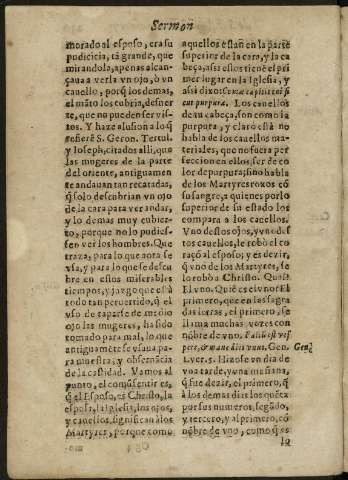 Sermon
morado al esposo, era su
pudicicia, tã grande, que
mirandola, apenas alcan-
çaua a verla vn ojo, ò vn
cauello, porq̃ los demas,
el mãto los cubria, de suer
te, que no pueden ser vis-
tos. Y haze alusion a lo q̃
refierẽ S. Geron. Tertul.
y Ioseph, citados alli, que
las mugeres de la parte
del oriente, antiguamen
te andauan tan recatadas,
q̃ solo descubrian vn ojo
de la cara para ver andar,
y lo demas muy cubier-
to, porque no lo pudies-
sen ver los hombres. Que
traza, para lo que aora se
vsa, y para lo que se descu
bre en estos miserables
tiempos, y juzgo que està
todo tan peruertido, q̃ el
vso de taparse de medio
ojo las mugeres, ha sido
tomado para mal, lo que
antiguamẽte se vsaua pa-
ra muestra, y obseruãcia
de la castidad. Vamos al
punto, el comũ sentir es,
q̃ el Esposo, es Christo, la
esposa, la Iglesia, los ojos,
y cauellos, significan à los
Martyres, porque como
aquellos estañ en la parte
superior de la cara, y la ca
beça, assi estos tienẽ el pri
mer lugar en la Iglesia, y
assi dixo:
cut purpura. Los cauellos
de su cabeça, son como la
purpura, y claro està no
habla de los cauellos ma-
teriales, que no fuera per
feccion en ellos, ser de co
lor de purpura; sino habla
de los Martyres roxos cõ
su sangre, a quienes por lo
superior de su estado los
compara a los cauellos.
Vno destos ojos, y vno des
tos cauellos, le robò el co
raçõ al esposo, y es dezir,
q̃ vno de los Martyres, se
lo robò a Christo. Qual?
El vno. Quiẽ es el vno? El
primero, que en las sagra
das letras, el primero, se
llama muchas vezes con
nõbre de vno. Factũ est ves
pere, & mane dies vnus. Gen. Genẽ
I. ver. 5. Hizose vn dia de
vna tarde, y vna mañana,
q̃ fue dezir, el primero, q̃
à los demas dias los quẽta
por sus numeros, segũdo,
y tercero, y al primero, cõ
nõbre de vno, como q̃ es
lo